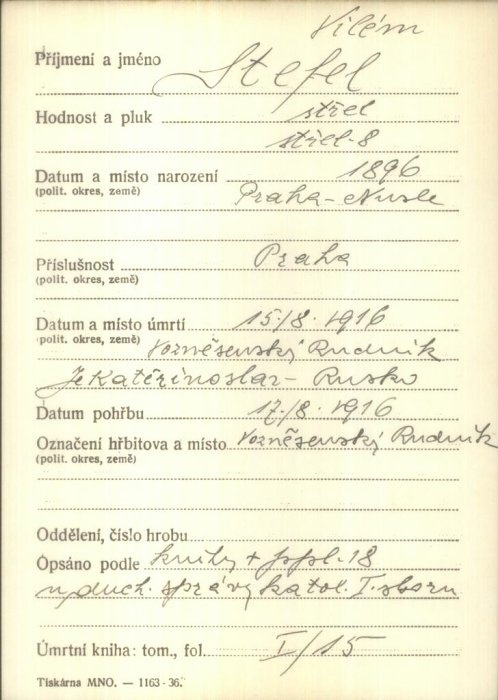 Vilém
Příjmení a jméno Stefel
Hodnost a pluk střel
střel-8
Datum a místo narození 1896
(polit. okres, země) Praha-Nusle
Příslušnost Praha
(polit. okres, země)
Datum a místo úmrtí 15./8. 1916
(polit. okres, země) Vozněsenský Rudnik
Jekatěrinoslav - Rusko
Datum pohřbu 17./8. 1916
Označení hřbitova a místo Vozněsenský Rudnik
(polit. okres, země)
Oddělení, číslo hrobu
Opsáno podle knihy + ppl. 18
u duch. správy katol. I. sboru
Úmrtní kniha: tom., fol. I/15
Tiskárna MNO. — 1163-36.